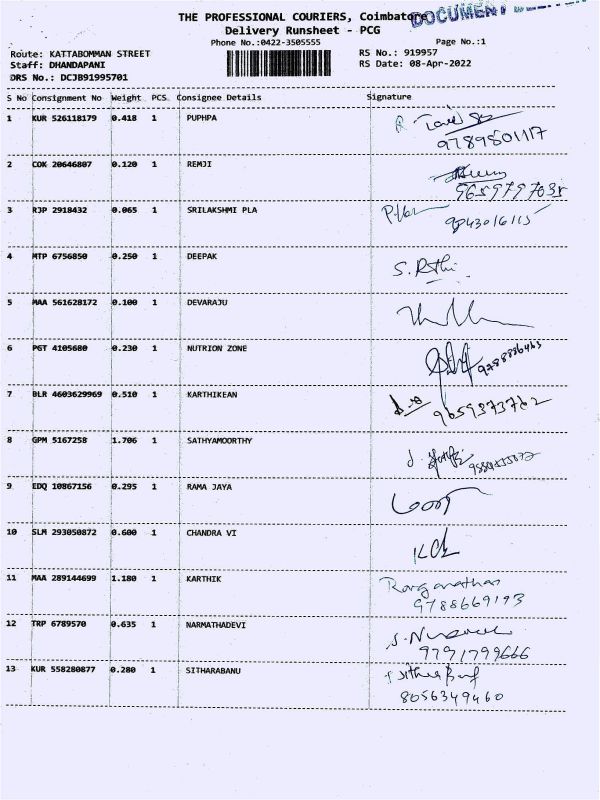 THE PROFESSIONAL COURIERS, Coimbatore
DOCUMENT
Delivery Runsheet - PCG
Phone No.:0422-3505555
Page No.:1
Route: KATTABOMMAN STREET
RS No.: 919957
Staff: DHANDAPANI
RS Date: 08-Apr-2022
DRS No.: DCJB91995701
S No Consignment No Weight PCS Consignee Details Signature
1 KUR 526118179 0.418 1 PUPHPA
9789801117
2 COK 20646807 0.120 1 REMJI
3 RJP 2918432 0.065 1 SRILAKSHMI PLA
9843016115
4 MTP 6756850 0.250 1 DEEPAK
5 MAA 561628172 0.100 1 DEVARAJU
6 PGT 4105680 0.230 1 NUTRION ZONE
7 BLR 4603629969 0.510 1 KARTHIKEAN
9659373762
8 GPM 5167258 1.706 1 SATHYAMOORTHY
9 EDQ 10867156 0.295 1 RAMA JAYA
10 SLM 293050872 0.600 1 CHANDRA VI
11 MAA 289144699 1.180 1 KARTHIK
Ranganathan
9788669193
12 TRP 6789570 0.635 1 NARMATHADEVI
9791799666
13 KUR 558280877 0.280 1 SITHARABANU
8056349460